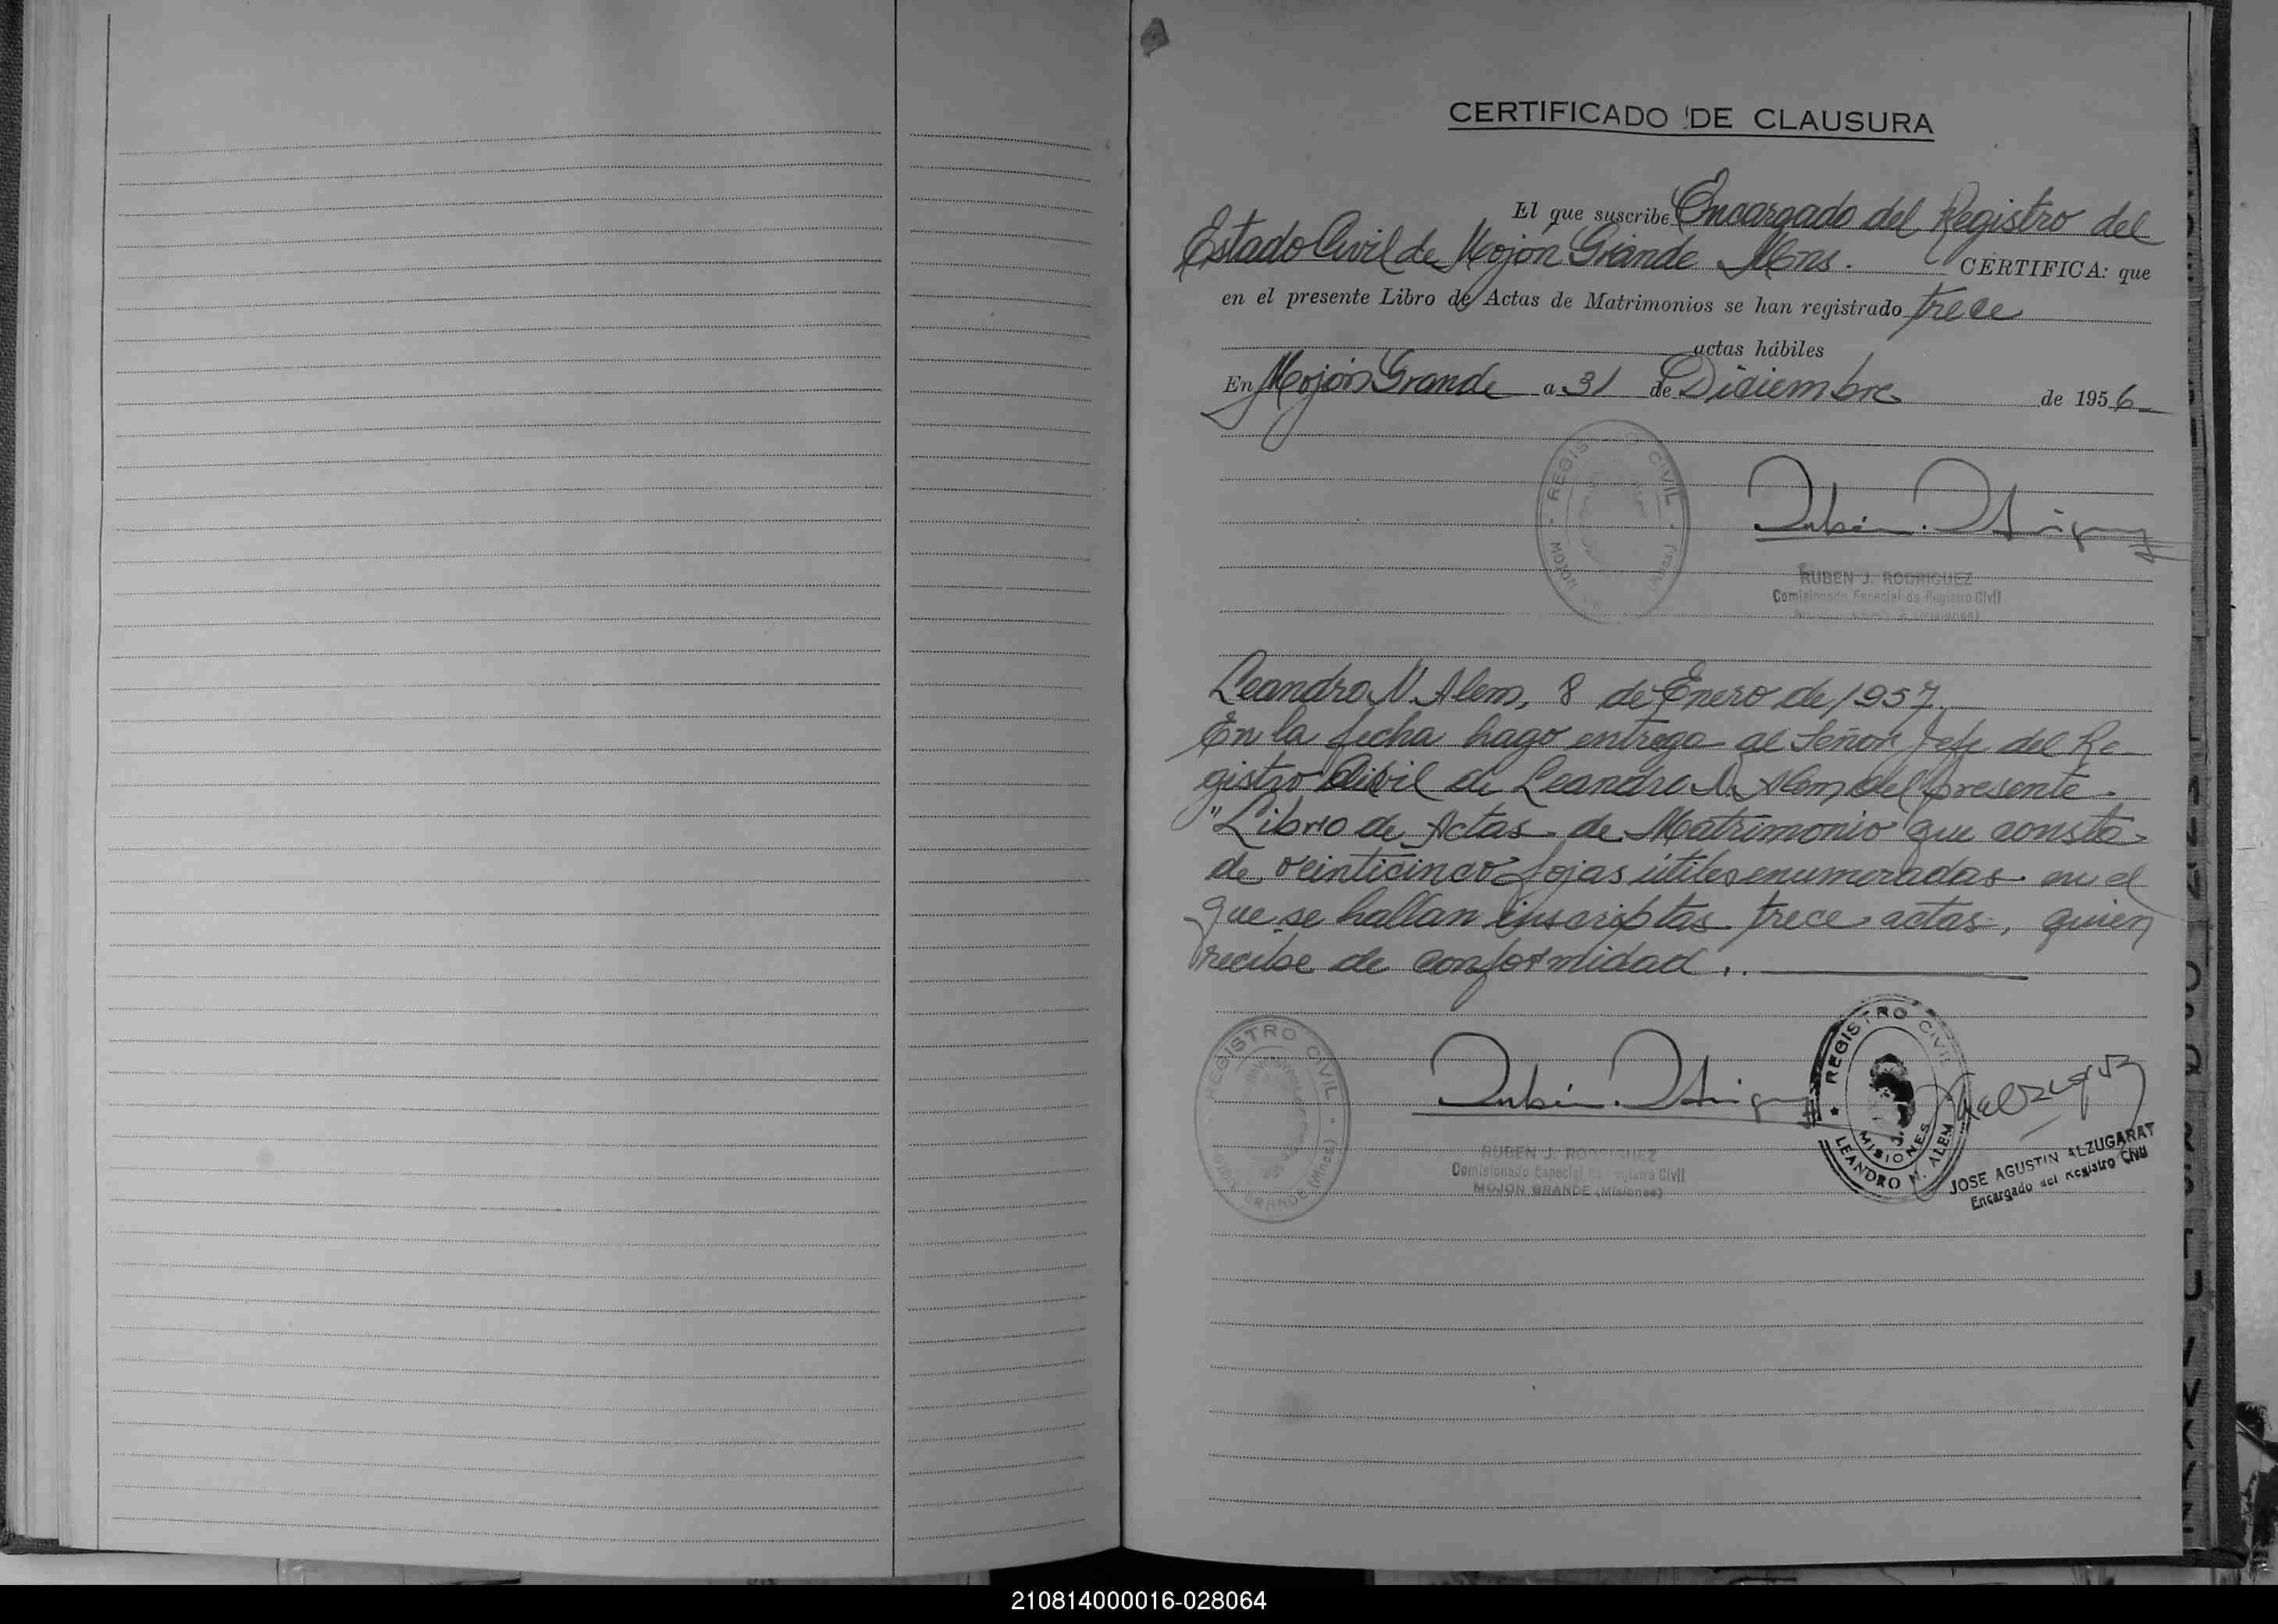 CERTIFICADO DE CLAUSURA
El que suscribe Encargado del Registro del
Estado Civil de Mojón Grande Mns. CERTIFICA: que
en el presente Libro de Actas de Matrimonios se han registrado trece
actas hábiles
En Mojón Grande a 31 de Diciembre de 1956
REGISTRO CIVIL
MOJON
RUBEN J. RODRIGUEZ
Comisionado Especial de Registro Civil
Leandro N. Alem, 8 de Enero de 1957.
En la fecha hago entrega al Señor Jefe del Re-
gistro Civil de Leandro N. Alem, del presente
"Libro de Actas de Matrimonio que consta
de veinticinco fojas útiles enumeradas en el
que se hallan inscriptas trece actas, quien
recibe de conformidad..
REGISTRO CIVIL
MOJON GRANDE (Mnes.)
RUBEN J. RODRIGUEZ
Comisionado Especial de Registro Civil
MOJON GRANDE (Misiones)
REGISTRO CIVIL
MISIONES
LEANDRO N. ALEM
JOSE AGUSTIN ALZUGARAT
Encargado del Registro Civil
210814000016-028064